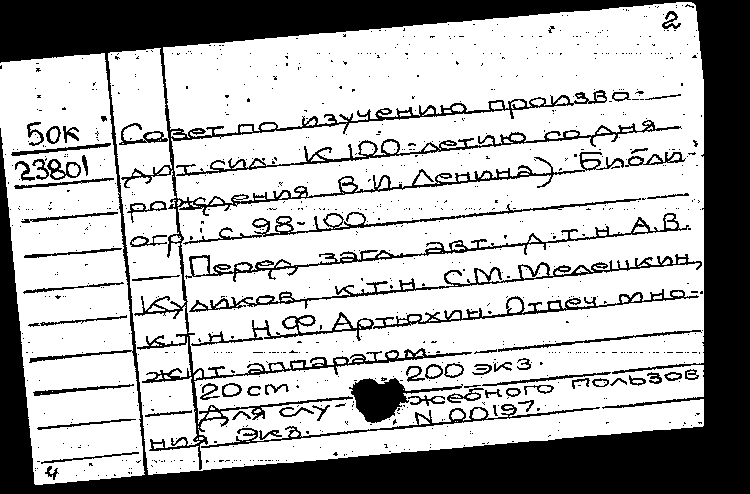 2
50к Совет по изучению произво-
23801 дит. сил. К 100-летию со дня
рождения В.И. Ленина). Библи-
огр.: с. 98-100.
Перед загл. авт.: д.т.н. А.В.
Куликов, к.т.н. С.М. Мелешкин,
к.т.н. Н.Ф. Артюхин. Отпеч. мно-
жит. аппаратом.
20 см. 200 экз.
Для слу- жебного пользов
ния. Экз. N 00197.
4